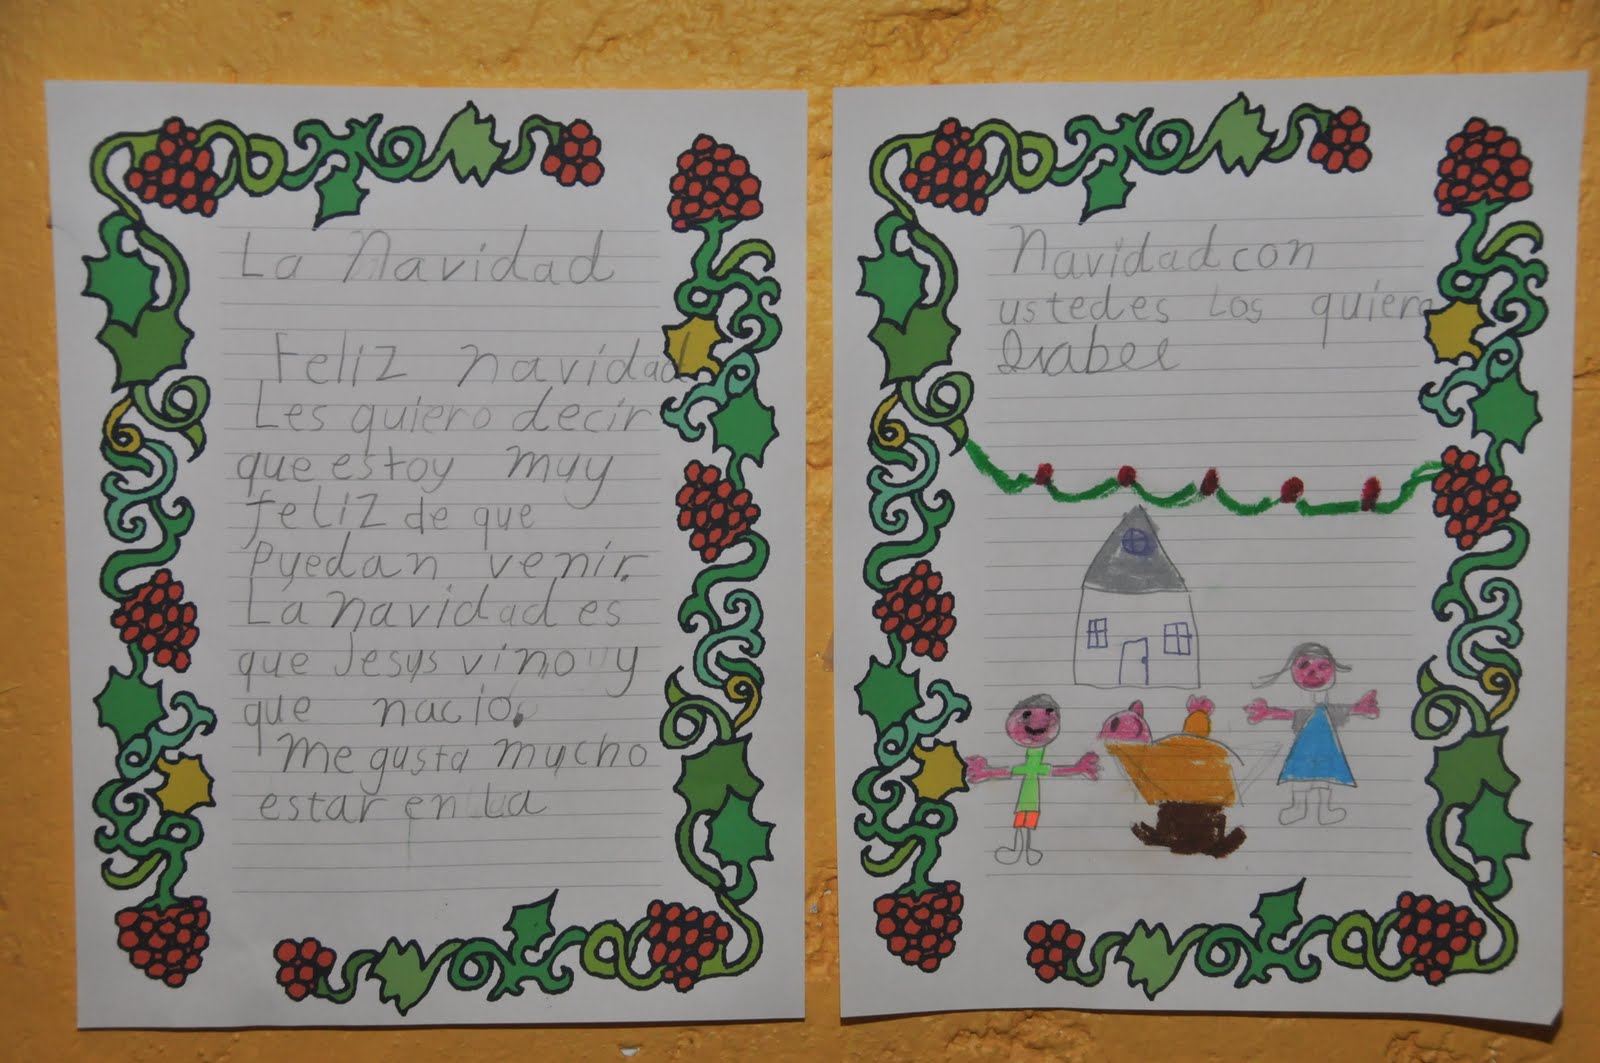 La Navidad
Feliz navidad
Les quiero decir
que estoy muy
feliz de que
puedan venir.
La navidad es
que Jesus vino y
que nacio.
Me gusta mucho
estar en La
Navidad con
ustedes Los quiero
Isabel